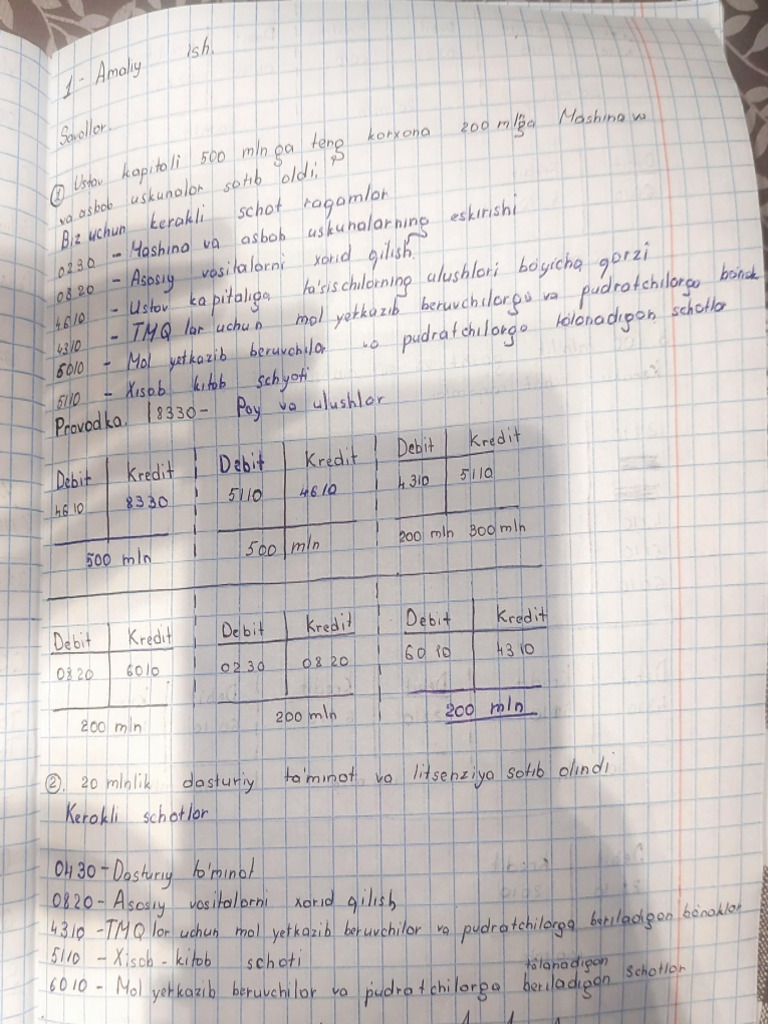 1 - Amaliy ish.
Savollor.
① Ustav kapitali 500 mln ga teng korxona 200 mlnga Mashina va
va asbob uskunalar sotib oldi.
Biz uchun kerakli schot raqamlar
0230 - Mashina va asbob uskunalarning eskirishi
0820 - Asosiy vositalarni xarid qilish.
4610 - Ustav kapitaliga ta'sischilarning ulushlari bo'yicha qarzi
4310 - TMQ lar uchun mol yetkazib beruvchilarga va pudratchilarga bo'nak
6010 - Mol yetkazib beruvchilar va pudratchilarga to'lanadigan schotlar
5110 - Xisob kitob schyoti
Provodka. | 8330 - Pay va ulushlar
Debit Kredit Debit Kredit Debit Kredit
4610 8330 5110 4610 4310 5110
500 mln 500 mln 200 mln 300 mln
Debit Kredit Debit Kredit Debit Kredit
0820 6010 0230 0820 6010 4310
200 mln 200 mln 200 mln
②. 20 mlnlik dasturiy ta'minot va litsenziya sotib olindi
Kerakli schotlar
0430 - Dasturiy ta'minot
0820 - Asosiy vositalarni xarid qilish
4310 - TMQ lar uchun mol yetkazib beruvchilar va pudratchilarga beriladigan bo'naklar
5110 - Xisob - kitob schoti
6010 - Mol yetkazib beruvchilar va pudratchilarga beriladigan to'lanadigan schotlar